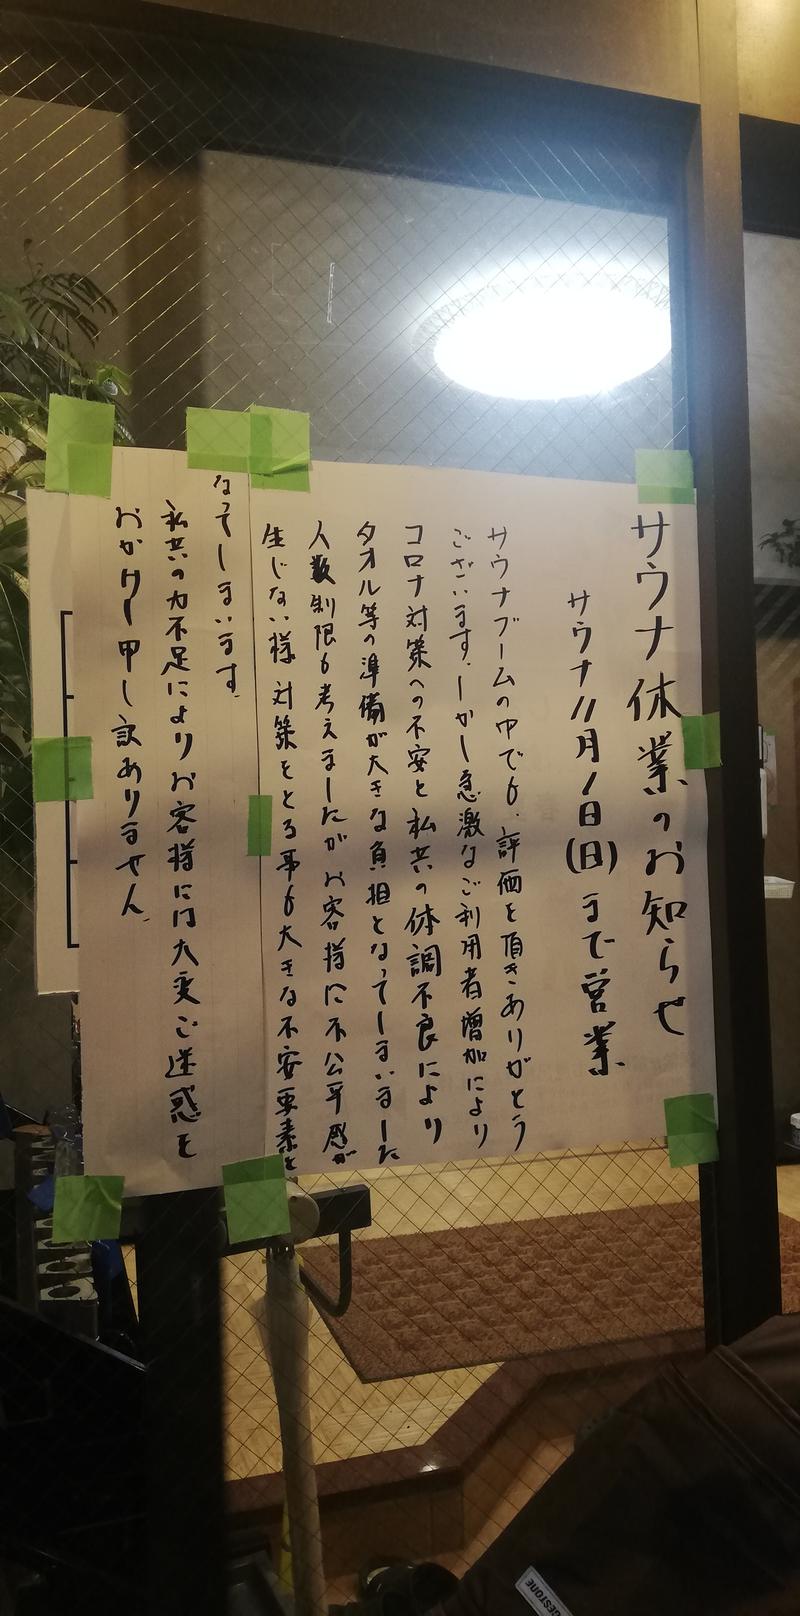 サウナ休業のお知らせ
サウナ11月1日(日)まで営業
サウナブームの中でも、評価を頂きありがとう
ございます。しかし急激なご利用者増加により
コロナ対策への不安と私共の体調不良により
タオル等の準備が大きな負担となってしまいました
人数制限も考えましたがお客様に不公平感が
生じない様対策をとる事も大きな不安要素と
なってしまいます。
私共の力不足によりお客様には大変ご迷惑を
おかけし申し訳ありません。
GESTONE